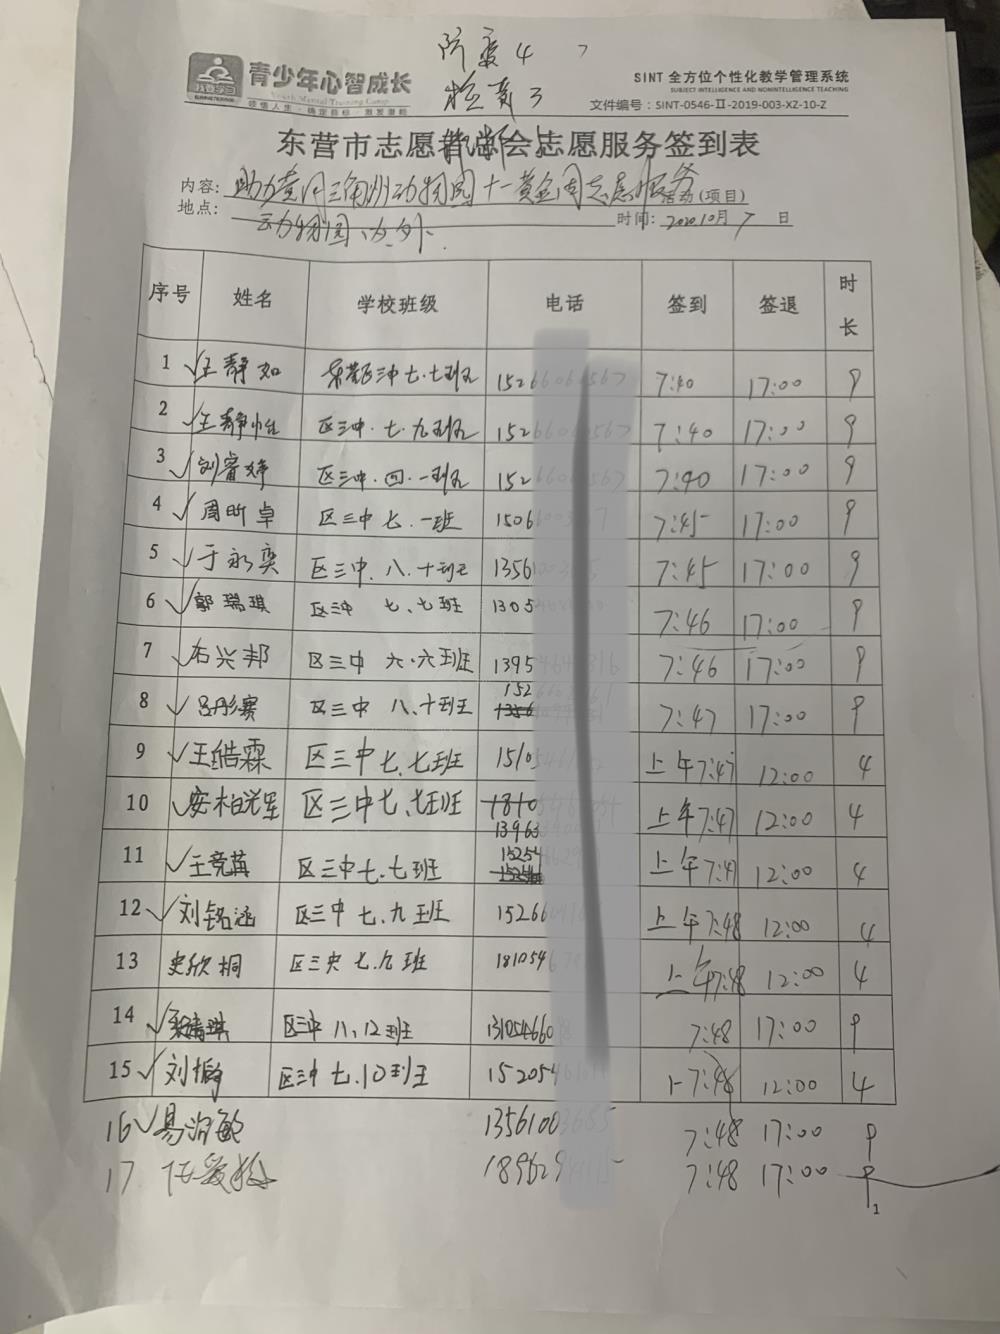 防疫 4
检票 3
我要学习
青少年心智成长
Youth Mental Training Camp
领悟人生·确定目标·激发潜能
SINT 全方位个性化教学管理系统
SUBJECT INTELLIGENCE AND NONINTELLIGENCE TEACHING
文件编号：SINT-0546-Ⅱ-2019-003-XZ-10-Z
东营市志愿者总会志愿服务签到表
内容： 助力黄河三角洲动物园十一黄金周志愿服务 活动(项目)
地点： 动物园内外 时间： 2020.10月 7 日
序号 姓名 学校班级 电话 签到 签退 时长
1 王静如 东营区三中七.七班 152 7:40 17:00 9
2 王静怡 区三中.七.九班 152 7:40 17:00 9
3 刘睿婷 区三中.四.一班 152 7:40 17:00 9
4 周昕卓 区三中七.一班 1506 7:45 17:00 9
5 于永奕 区三中.八.十班 1356 7:45 17:00 9
6 郭瑞琪 区三中 七.七班 1305 7:46 17:00 9
7 石兴邦 区三中 六.六班 1395 7:46 17:00 9
8 吕彤赛 区三中 八.十班 152 7:47 17:00 9
9 王皓霖 区三中七.七班 1510 上午7:47 12:00 4
10 区三中七.七班 13963 上午7:47 12:00 4
11 王竞苒 区三中七.七班 15254 上午7:47 12:00 4
12 刘铭涵 区三中七.九班 15266 上午7:48 12:00 4
13 史欣桐 区三中七.九班 181054 上午7:48 12:00 4
14 区三中八.12班 131054660 7:48 17:00 9
15 刘 区三中七.10班 152054 7:48 12:00 4
16 易治敏 1356100 7:48 17:00 9
17 任爱 189629 7:48 17:00 9
1